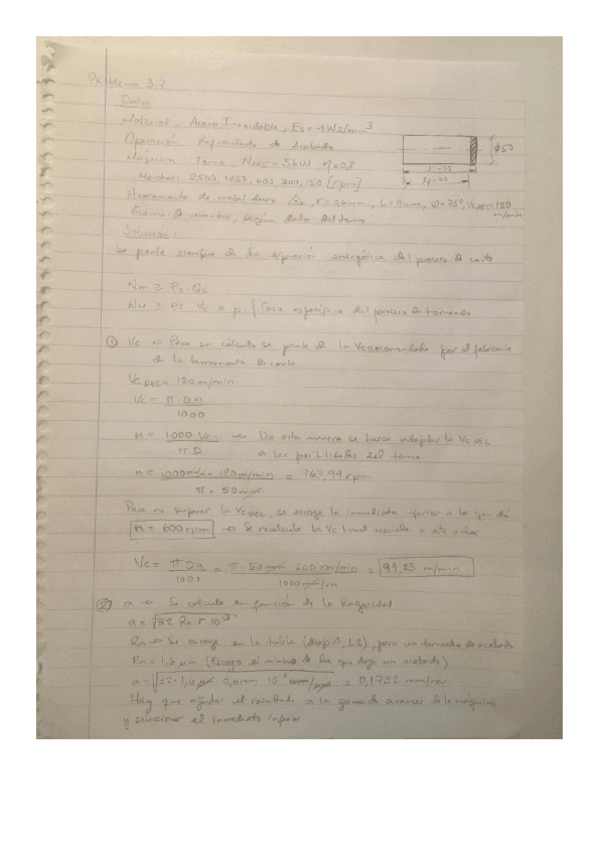 Problema 3.7
Datos
Material: Acero Inoxidable, Es = 4 Ws/mm³
Operación Refrentado de Acabado
Máquina Torno, NME = 5kW η=0,8
Marchas: 2500, 1250, 600, 300, 150 [rpm]
Herramienta de metal duro, r=0,6mm, L=9mm, φ=75°, Vc REC=120 m/min
Gama de avances, según datos del torno
Solución:
Se parte siempre de la expresión energética del proceso de corte
Nm ≥ Es · Qc
Nm ≥ Es Vc a p } Caso específico del proceso de torneado
① Vc → Para su cálculo se parte de la Vc recomendada por el fabricante
de la herramienta de corte
Vc REC = 120 m/min
Vc = π · D n / 1000
n = 1000 Vc / π D → De esta manera se busca adaptar la Vc REC
a las posibilidades del torno
n = 1000 mm/m · 120 m/min / π · 50 mm = 763,94 rpm
Para no superar la Vc REC, se escoge la inmediata inferior a la que dé
n = 600 rpm → Se recalcula la Vc real asociada a este valor
Vc = π D n / 1000 = π · 50 mm · 600 rev/min / 1000 mm/m = 94,25 m/min
② a → Se calcula en función de la Rugosidad
a = √32 Ra r 10⁻³
Ra → Se escoge en la tabla, para un torneado de acabado
Ra = 1,6 μm (Escogo el mínimo de los que deja un acabado)
a = √32 · 1,6 μm 0,6mm 10⁻³ mm/μm = 0,1752 mm/rev.
Hay que ajustar el resultado a la gama de avances de la máquina
y seleccionar el inmediato inferior